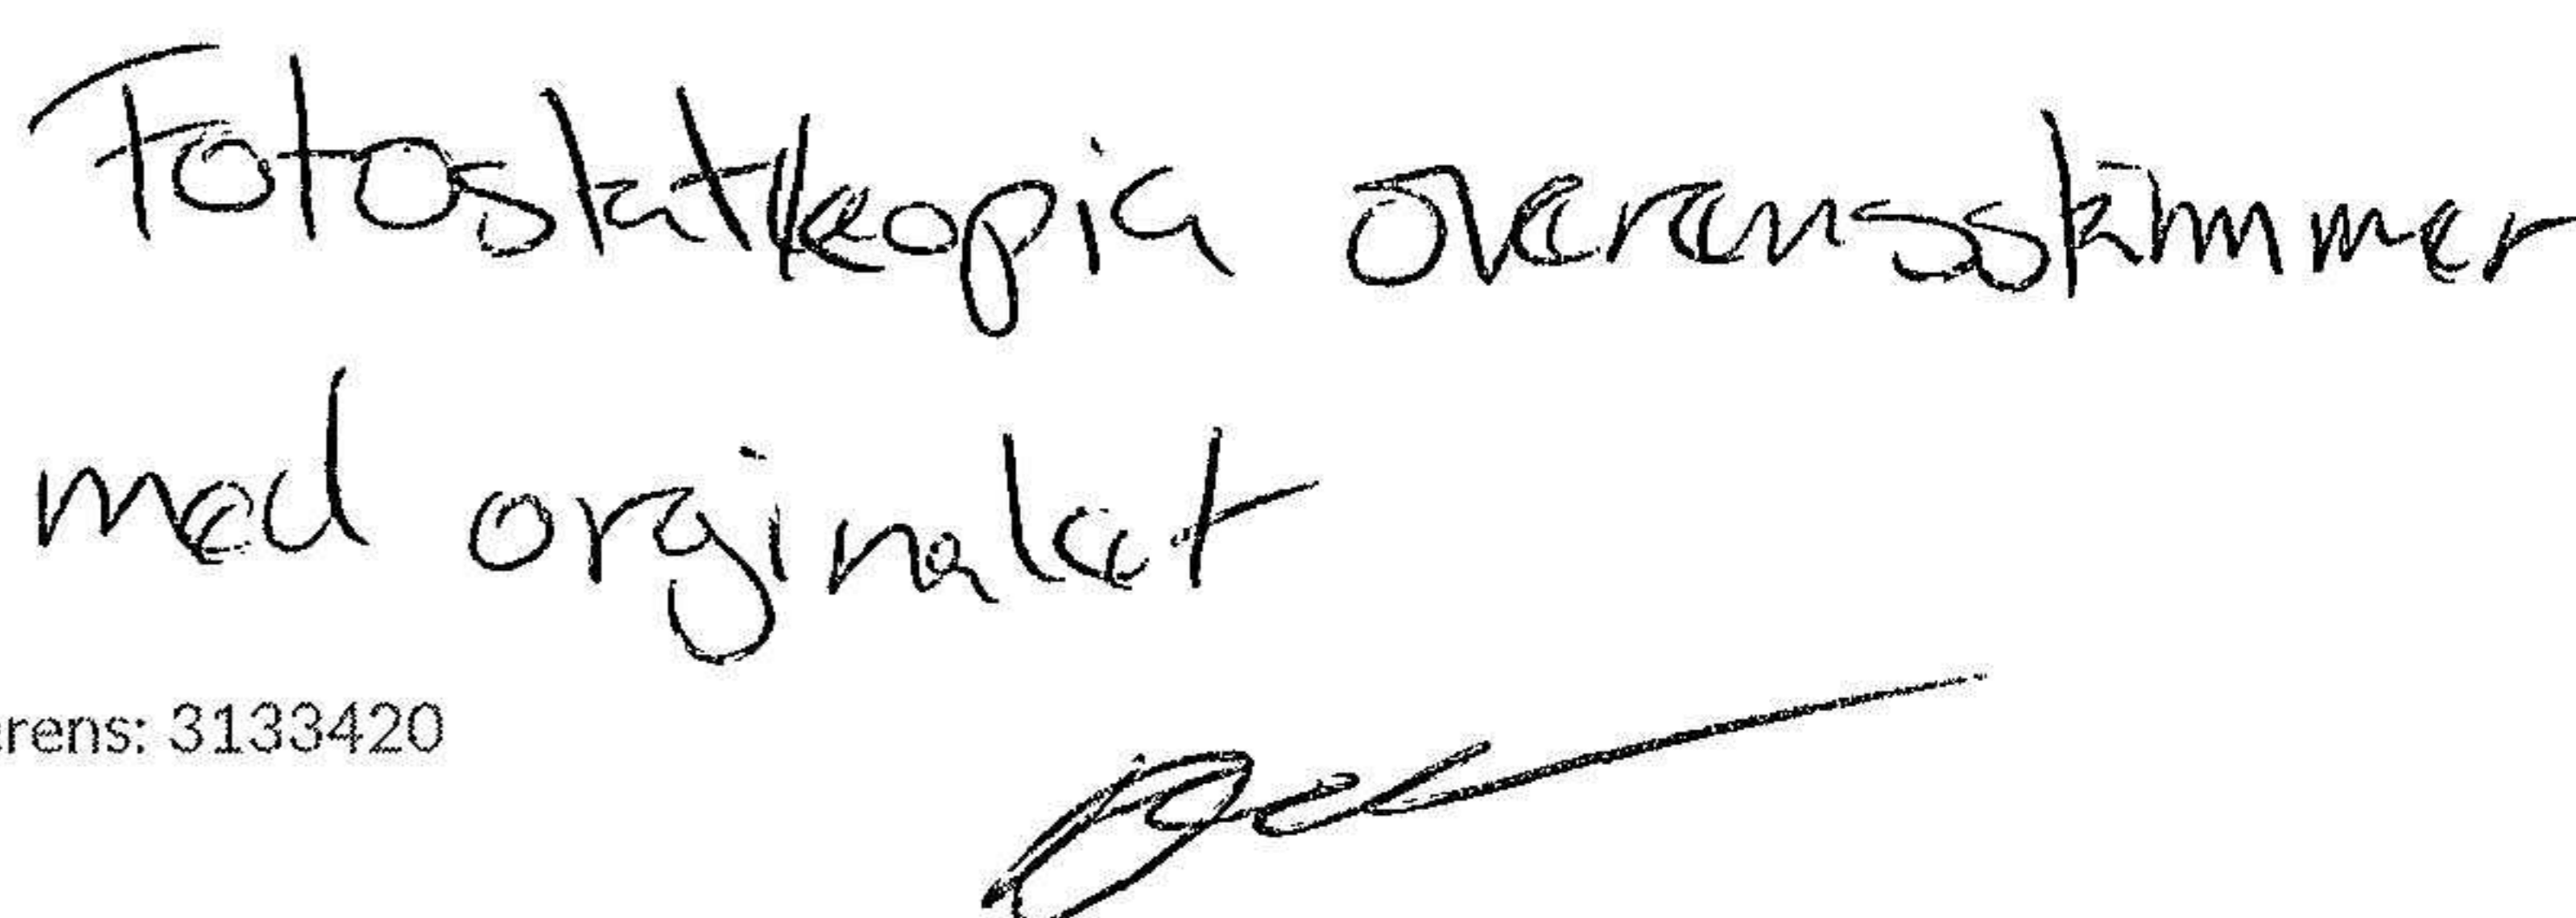 Fotostatkopia överensstämmer
med orginalet
erens: 3133420